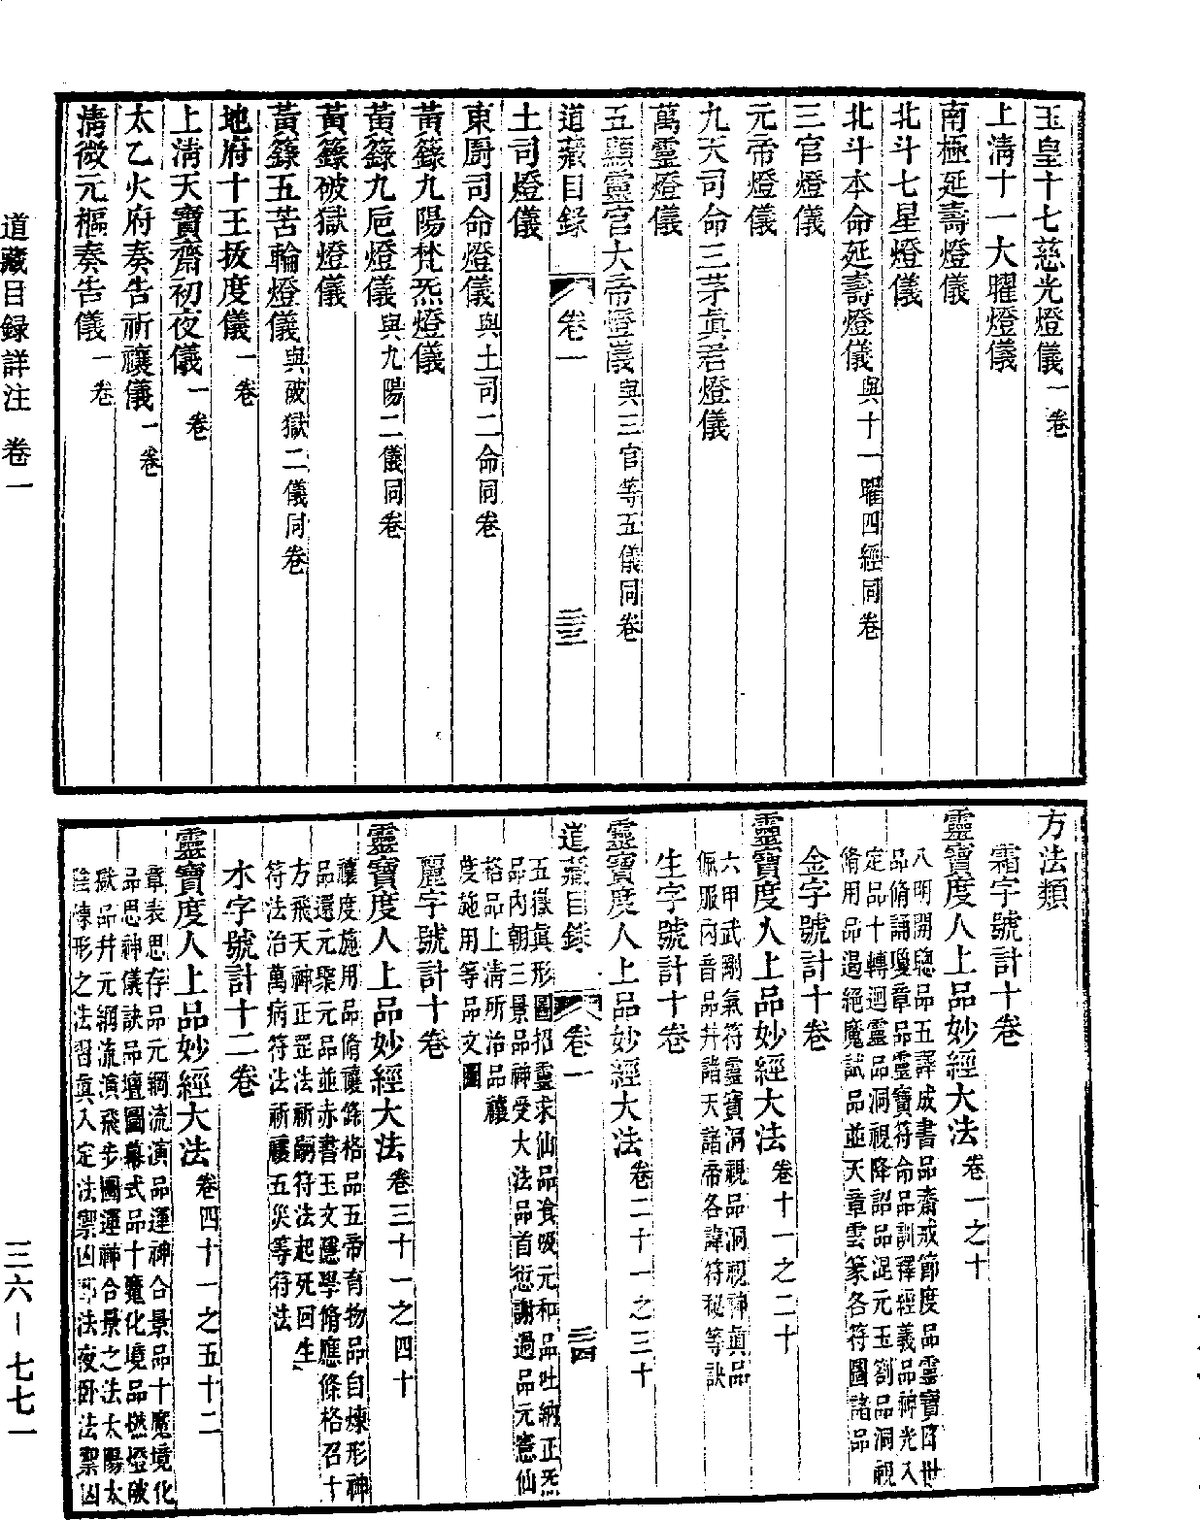 玉皇十七慈光燈儀一卷
上清十一大曜燈儀
南極延壽燈儀
北斗七星燈儀
北斗本命延壽燈儀與十一曜四經同卷
三官燈儀
元帝燈儀
九天司命三茅真君燈儀
萬靈燈儀
五顯靈官大帝燈儀與三官等五儀同卷
道藏目録 卷一 三三
土司燈儀
東厨司命燈儀與土司二命同卷
黃籙九陽梵炁燈儀
黃籙九巵燈儀與九陽二儀同卷
黃籙破獄燈儀
黃籙五苦輪燈儀與破獄二儀同卷
地府十王拔度儀一卷
上清天寶齋初夜儀一卷
太乙火府奏告祈禳儀一卷
清微元樞奏告儀一卷
方法類
霜字號計十卷
靈寶度人上品妙經大法卷一之十
八明開聰品五譯成書品齋戒節度品靈寶四世
品脩誦瓊章品靈寶符命品訓釋經義品神光入
定品十轉迴靈品洞視降詔品混元玉劄品洞視
脩用品遏絕魔試品並天章雲篆各符圖諸品
金字號計十卷
靈寶度人上品妙經大法卷十一之二十
六甲武剛氣符靈寶洞視品洞視神真品
佩服內音品并諸天諸帝各諱符秘等訣
生字號計十卷
靈寶度人上品妙經大法卷二十一之三十
道藏目錄 卷一 三四
五嶽真形圖招靈求仙品食吸元和品吐納正炁
品內朝三景品神受大法品首愆謝過品元憲仙
格品上清所治品禳
度施用等品文圖
麗字號計十卷
靈寶度人上品妙經大法卷三十一之四十
禳度施用品脩禳條格品五帝育物品自煉形神
品還元聚元品並赤書玉文隱學脩應條格召十
方飛天神正罡法祈嗣符法起死回生
符法治萬病符法祈禳五災等符法
水字號計十二卷
靈寶度人上品妙經大法卷四十一之五十二
章表思存品元綱流演品運神合景品十魔境化
品思神儀訣品壇圖幕式品十魔化境品燃燈破
獄品并元綱流演飛步圖運神合景之法太陽太
陰煉形之法習真入定法禦凶邪法夜卧法禦凶
道藏目録詳注 卷一
三六－七七一